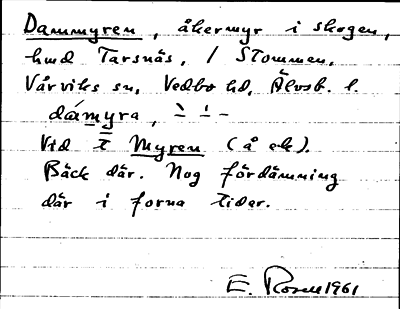 Dammyren, åkermyr i skogen,
hmd Tarsnäs, / Stommen,
Vårviks sn, Vedbo hd, Älvsb. l.
dámyra, ` ´ -
Vid ī Myren (å ek).
Bäck där. Nog fördämning
där i forna tider.
E. Rosell 1961